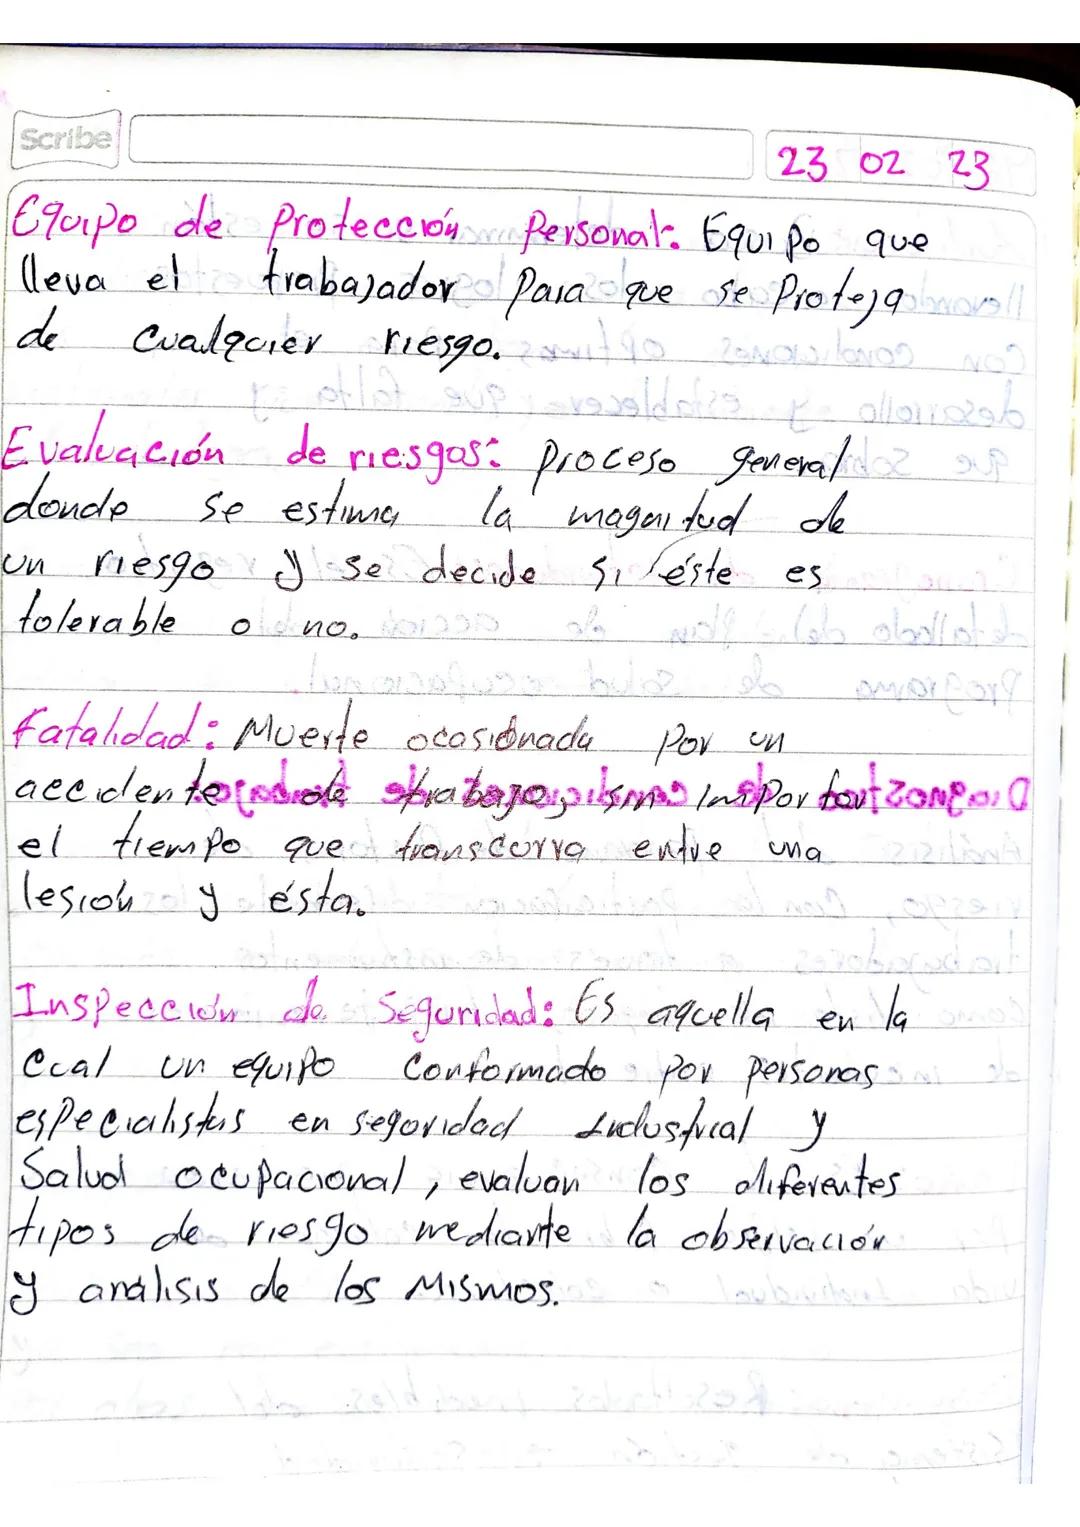 Scribe
23 02 23
Equipo de Protección Personal: Equipo que
lleva el trabajador para que se proteja
de cualquier riesgo.
Evaluación de riesgos: proceso general
donde se estima la magnitud de
un riesgo y se decide si éste es
tolerable o no.
Fatalidad: Muerte ocasionada por un
accidente de trabajo, sin importar
el tiempo que transcurra entre una
lesión y ésta.
Inspección de Seguridad: Es aquella en la
cual un equipo conformado por personas
especialistas en seguridad industrial y
Salud ocupacional, evaluan los diferentes
tipos de riesgo mediante la observación
y análisis de los mismos.